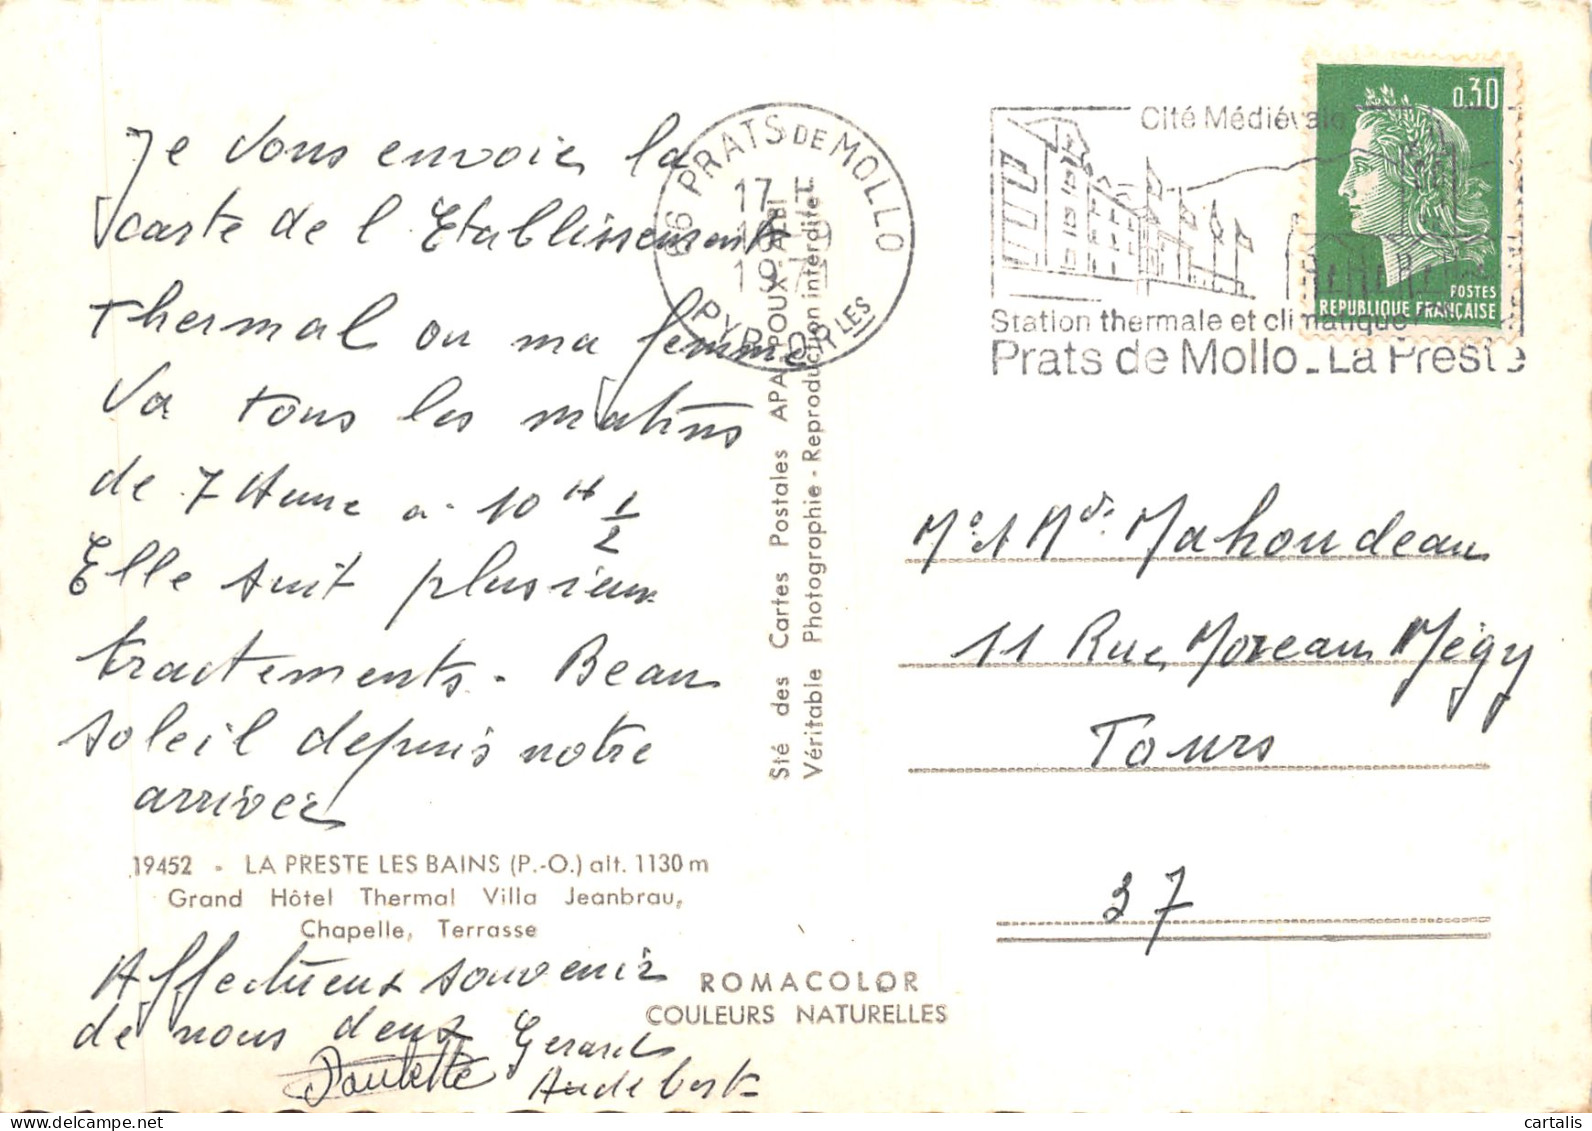 Je vous envoie la
carte de l Etablissement
thermal ou ma femme
va tous les matins
de 7 Heure a 10 H 1/2
Elle suit plusieur
traitements. Beau
soleil depuis notre
arrivée
19452 - LA PRESTE LES BAINS (P.-O.) alt. 1130 m
Grand Hôtel Thermal Villa Jeanbrau,
Chapelle, Terrasse
Affectueux souvenir
de nous deux Gerard
Paulette Audebert
ROMACOLOR
COULEURS NATURELLES
Sté des Cartes Postales APA-POUX - ALBI
Véritable Photographie - Reproduction interdite
66 PRATS DE MOLLO
17 H
PYR. ORLES
Cité Médiévale
Station thermale et climatique
Prats de Mollo - La Preste
0,30
POSTES
REPUBLIQUE FRANÇAISE
Mr et Mde Mahoudeau
11 Rue Moreau Mégy
Tours
37
cartalis